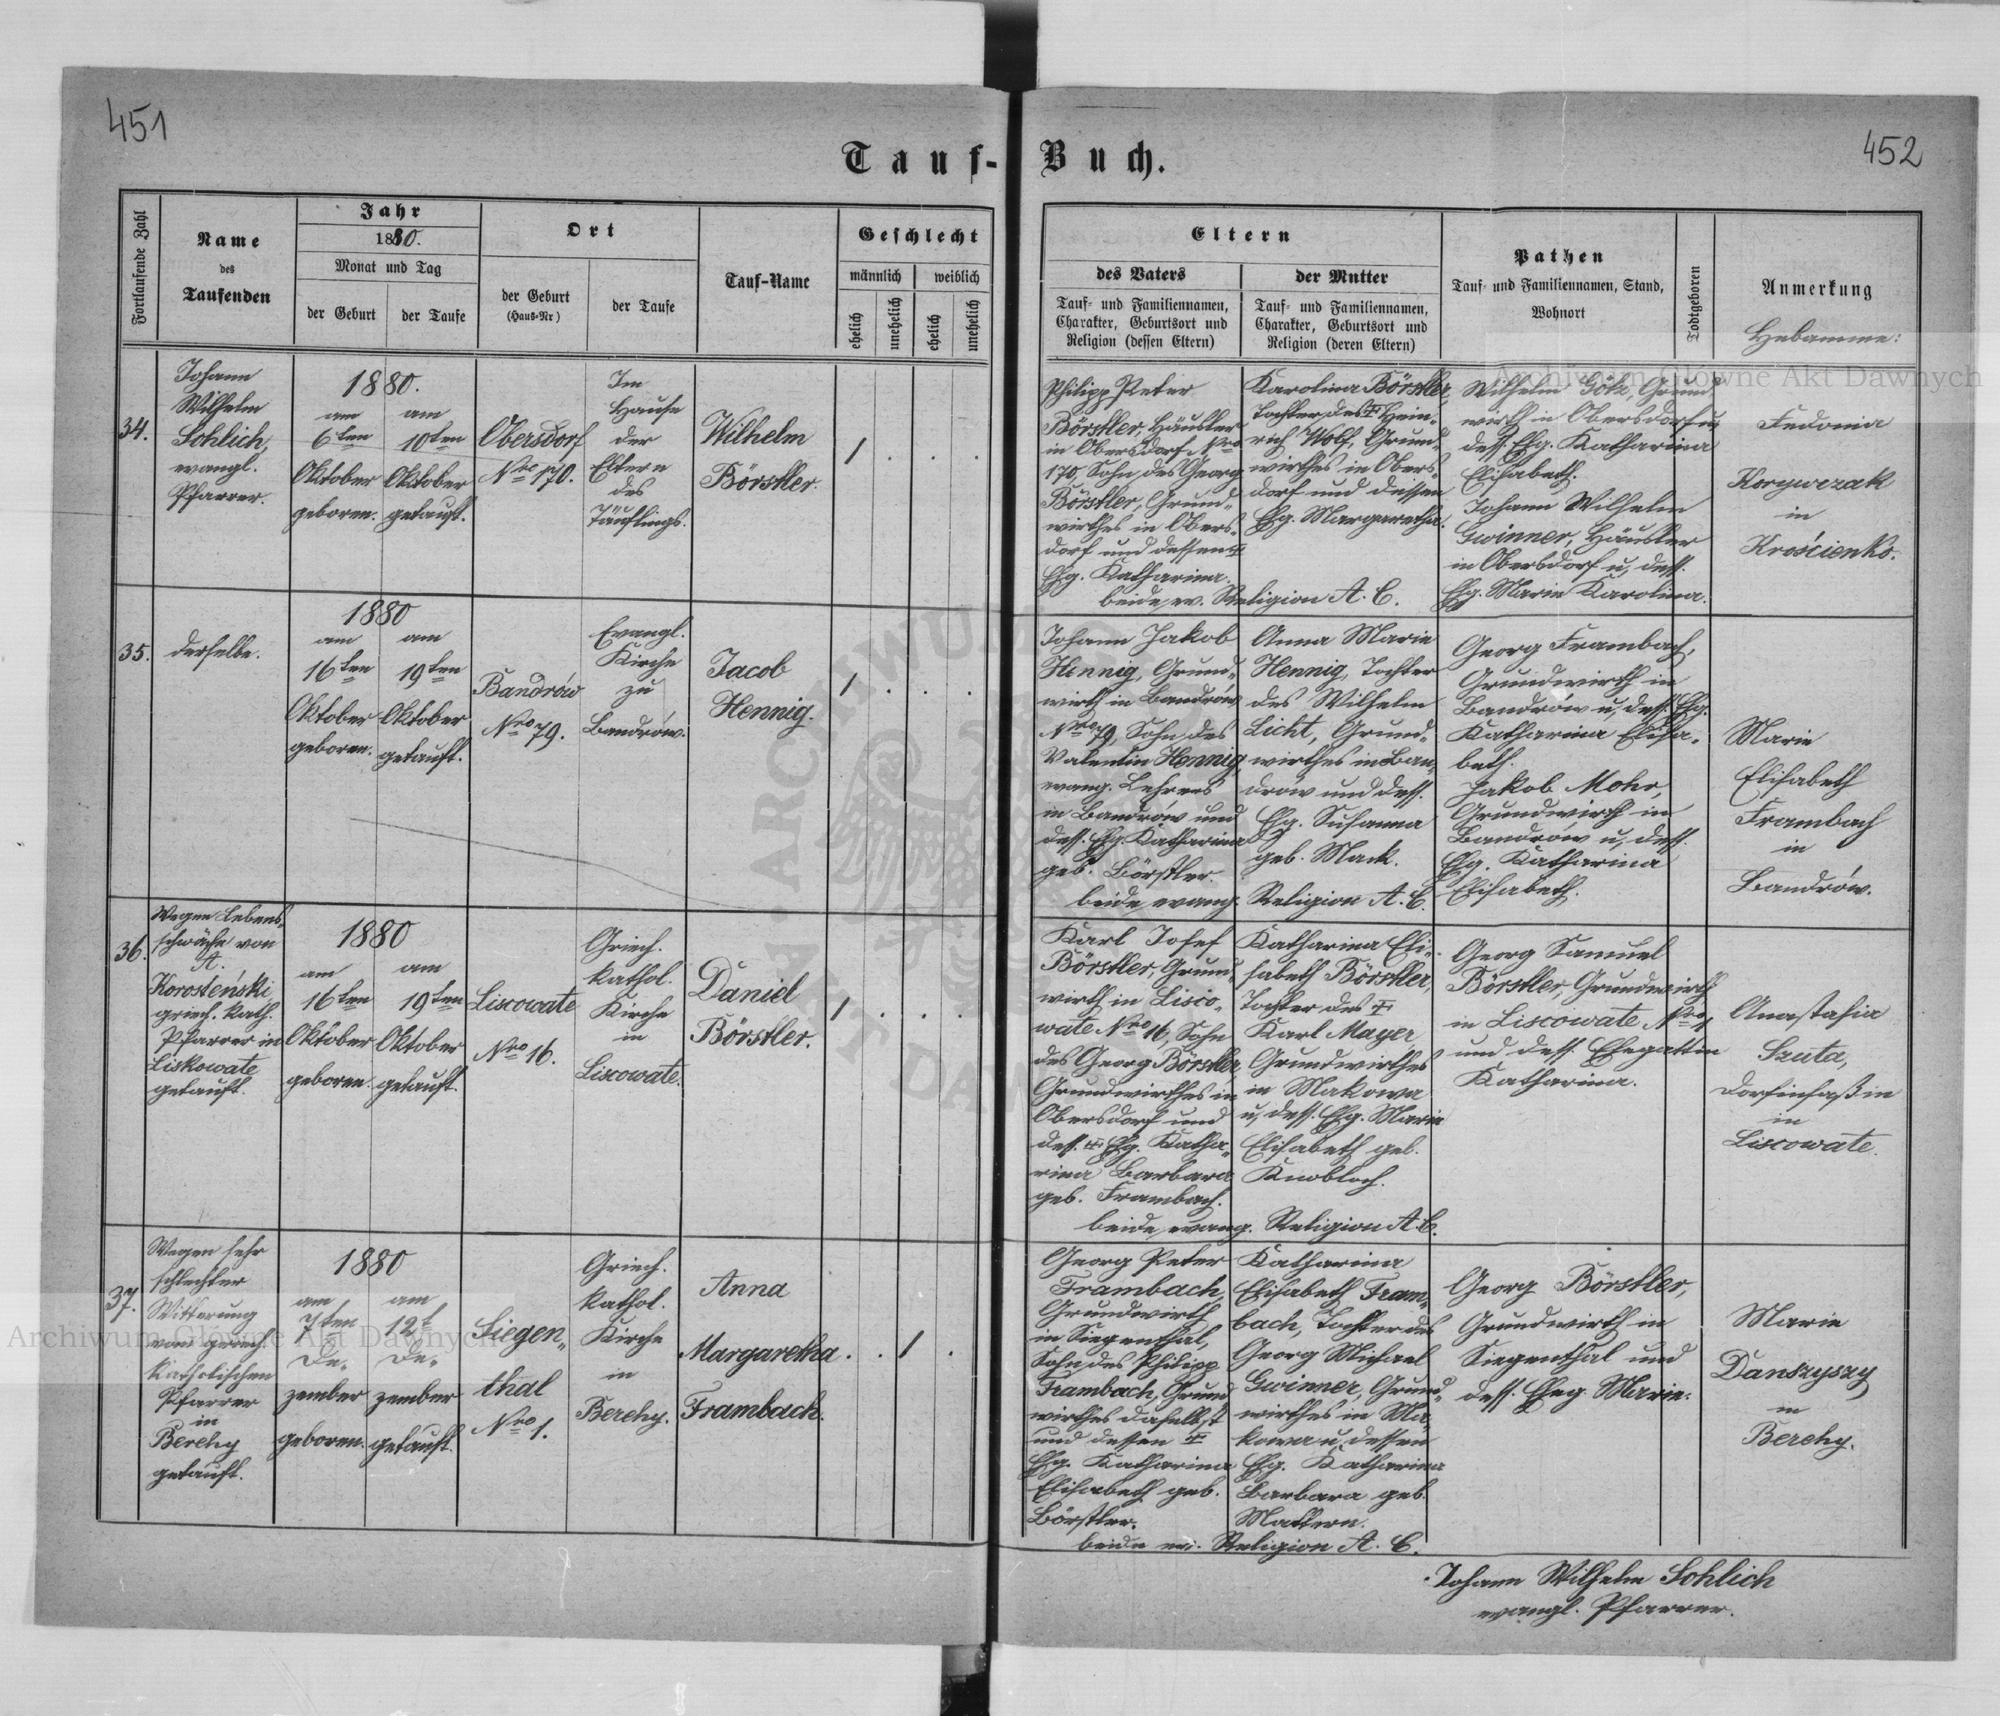 451
452
Tauf-Buch.
Fortlaufende Zahl
Name
des
Taufenden
Jahr
1880.
Monat und Tag
der Geburt
der Taufe
Ort
der Geburt
(Haus-Nr)
der Taufe
Tauf-Name
Geschlecht
männlich
weiblich
ehelich
unehelich
ehelich
unehelich
Eltern
des Vaters
Tauf- und Familiennamen,
Charakter, Geburtsort und
Religion (dessen Eltern)
der Mutter
Tauf- und Familiennamen,
Charakter, Geburtsort und
Religion (deren Eltern)
Pathen
Tauf- und Familiennamen, Stand,
Wohnort
Todtgeboren
Anmerkung
Hebamme:
34.
Johann
Wilhelm
Sohlich,
evangl.
Pfarrer.
1880.
am
6ten
Oktober
geboren.
am
10ten
Oktober
getauft.
Obersdorf
Nro 170.
Im
Hause
der
Eltern
des
Täuflings.
Wilhelm
Börstler.
1 . . .
Philipp Peter
Börstler, Häusler
in Obersdorf Nro
170, Sohn des Georg
Börstler, Grund-
wirthes in Obers-
dorf und dessen
Ehg. Katharina.
Karolina Börstler,
Tochter des Hein-
rich Wolf, Grund-
wirthes in Obers-
dorf und dessen
Ehg. Margaretha.
beide ev. Religion A. C.
Wilhelm Götz, Grund-
wirth in Obersdorf u,
dess. Ehg. Katharina
Elisabeth.
Johann Wilhelm
Gwinner, Häusler
in Obersdorf u, dess.
Ehg. Marie Karolina.
Fedonia
Korywczak
in
Krościenko.
35.
derselbe.
1880
am
16ten
Oktober
geboren.
am
19ten
Oktober
getauft.
Bandrów
Nro 79.
Evangl.
Kirche
zu
Bandrów.
Jacob
Hennig.
1 . . .
Johann Jakob
Hennig, Grund-
wirth in Bandrów
Nro 79, Sohn des
Valentin Hennig,
evang. Lehrers
in Bandrów und
dess. Ehg. Katharina
geb. Börstler.
Anna Marie
Hennig, Tochter
des Wilhelm
Licht, Grund-
wirthes in Ban-
drow und dess.
Ehg. Susanna
geb. Mack.
beide evang. Religion A. C.
Georg Frambach,
Grundwirth in
Bandrów u, dess. Ehg.
Katharina Elisa-
beth.
Jakob Mohr,
Grundwirth in
Bandrów u, dess.
Ehg. Katharina
Elisabeth.
Marie
Elisabeth
Frambach
in
Bandrów.
36.
Wegen Lebens-
schwäche von
A.
Korosteński
griech. kath.
Pfarrer in
Liskowate
getauft.
1880
am
16ten
Oktober
geboren.
am
19ten
Oktober
getauft.
Liscowate
Nro 16.
Griech.
kathol.
Kirche
in
Liscowate.
Daniel
Börstler.
1 . . .
Karl Josef
Börstler, Grund-
wirth in Lisco-
wate Nro 16, Sohn
des Georg Börstler,
Grundwirthes in
Obersdorf und
dess. Ehg. Katha-
rina Barbara
geb. Frambach.
Katharina Eli-
sabeth Börstler,
Tochter des
Karl Mayer
Grundwirthes
in Makowa
u, dess. Ehg. Marie
Elisabeth geb.
Knobloch.
beide evang. Religion A. C.
Georg Samuel
Börstler, Grundwirth
in Liscowate Nro 1
und dess. Ehegattin
Katharina.
Anastasia
Szuta,
Dorfinsaßin
in
Liscowate.
37.
Wegen sehr
schlechter
Witterung
vom griech.
katholischen
Pfarrer
in
Berehy
getauft.
1880
am
7ten
De-
zember
geboren.
am
12t
De-
zember
getauft.
Siegen-
thal
Nro 1.
Griech.
kathol.
Kirche
in
Berehy.
Anna
Margaretha
Frambach.
. . 1 .
Georg Peter
Frambach,
Grundwirth
in Siegenthal,
Sohn des Philipp
Frambach, Grund-
wirthes daselbst
und dessen
Ehg. Katharina
Elisabeth geb.
Börstler.
Katharina
Elisabeth Fram-
bach, Tochter des
Georg Michael
Gwinner, Grund-
wirthes in Ma-
kowa u, dessen
Ehg. Katharina
Barbara geb.
Mattern.
beide ev. Religion A. C.
Georg Börstler,
Grundwirth in
Siegenthal und
dess. Eheg. Marie.
Marie
Danszyszy
in
Berehy.
Johann Wilhelm Sohlich
evangl. Pfarrer.
Archiwum Główne Akt Dawnych
Archiwum Główne Akt Dawnych